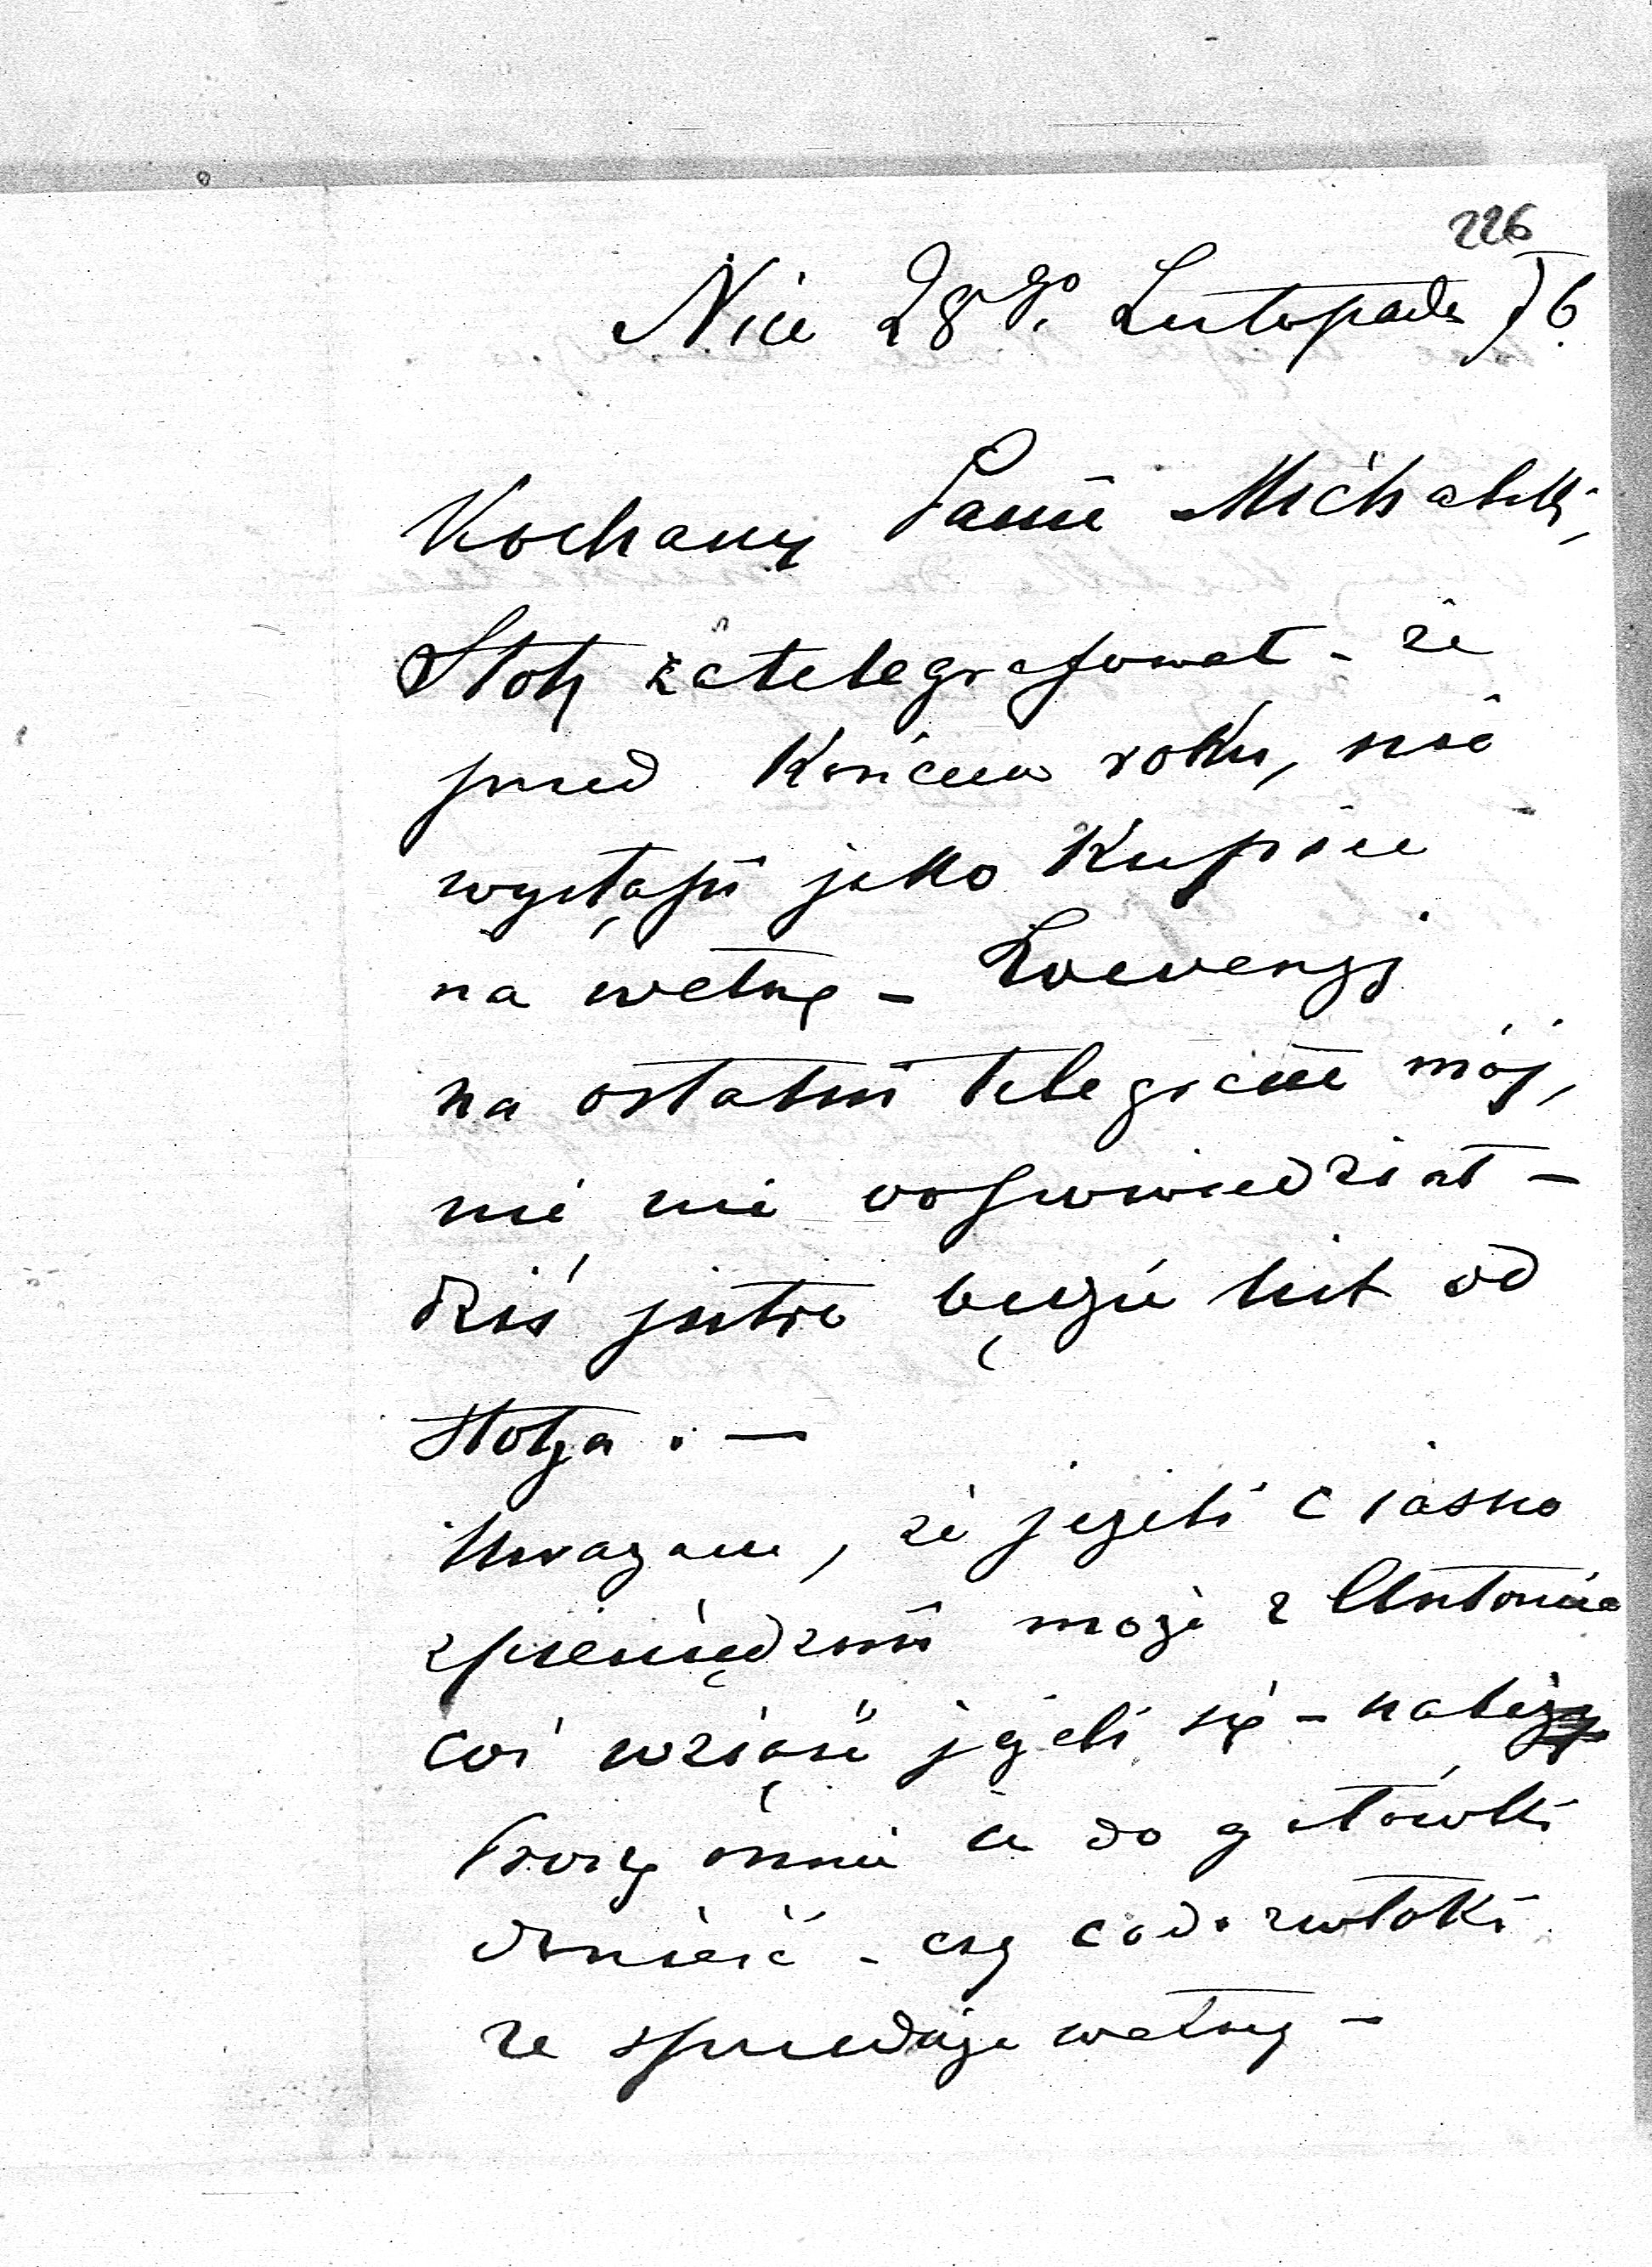 226
Nice 28go Listopada 76.
Kochany Panie Michalski,
Stolz zatelegrafował - że
przed Końcem roku, nie
wystąpi jako Kupiec
na wełnę - Loewengj
na ostatni telegram mój,
nie nie odpowiedział -
dziś jutro będzie list od
Stolza . —
Uważam, że jeżeli ciasno
z pieniędzmi może z Antonina
coś wziąść jeżeli się - należy
Proszę mnie co do gotówki
donieść - czy co do zwłoki
ze sprzedażą wełny -